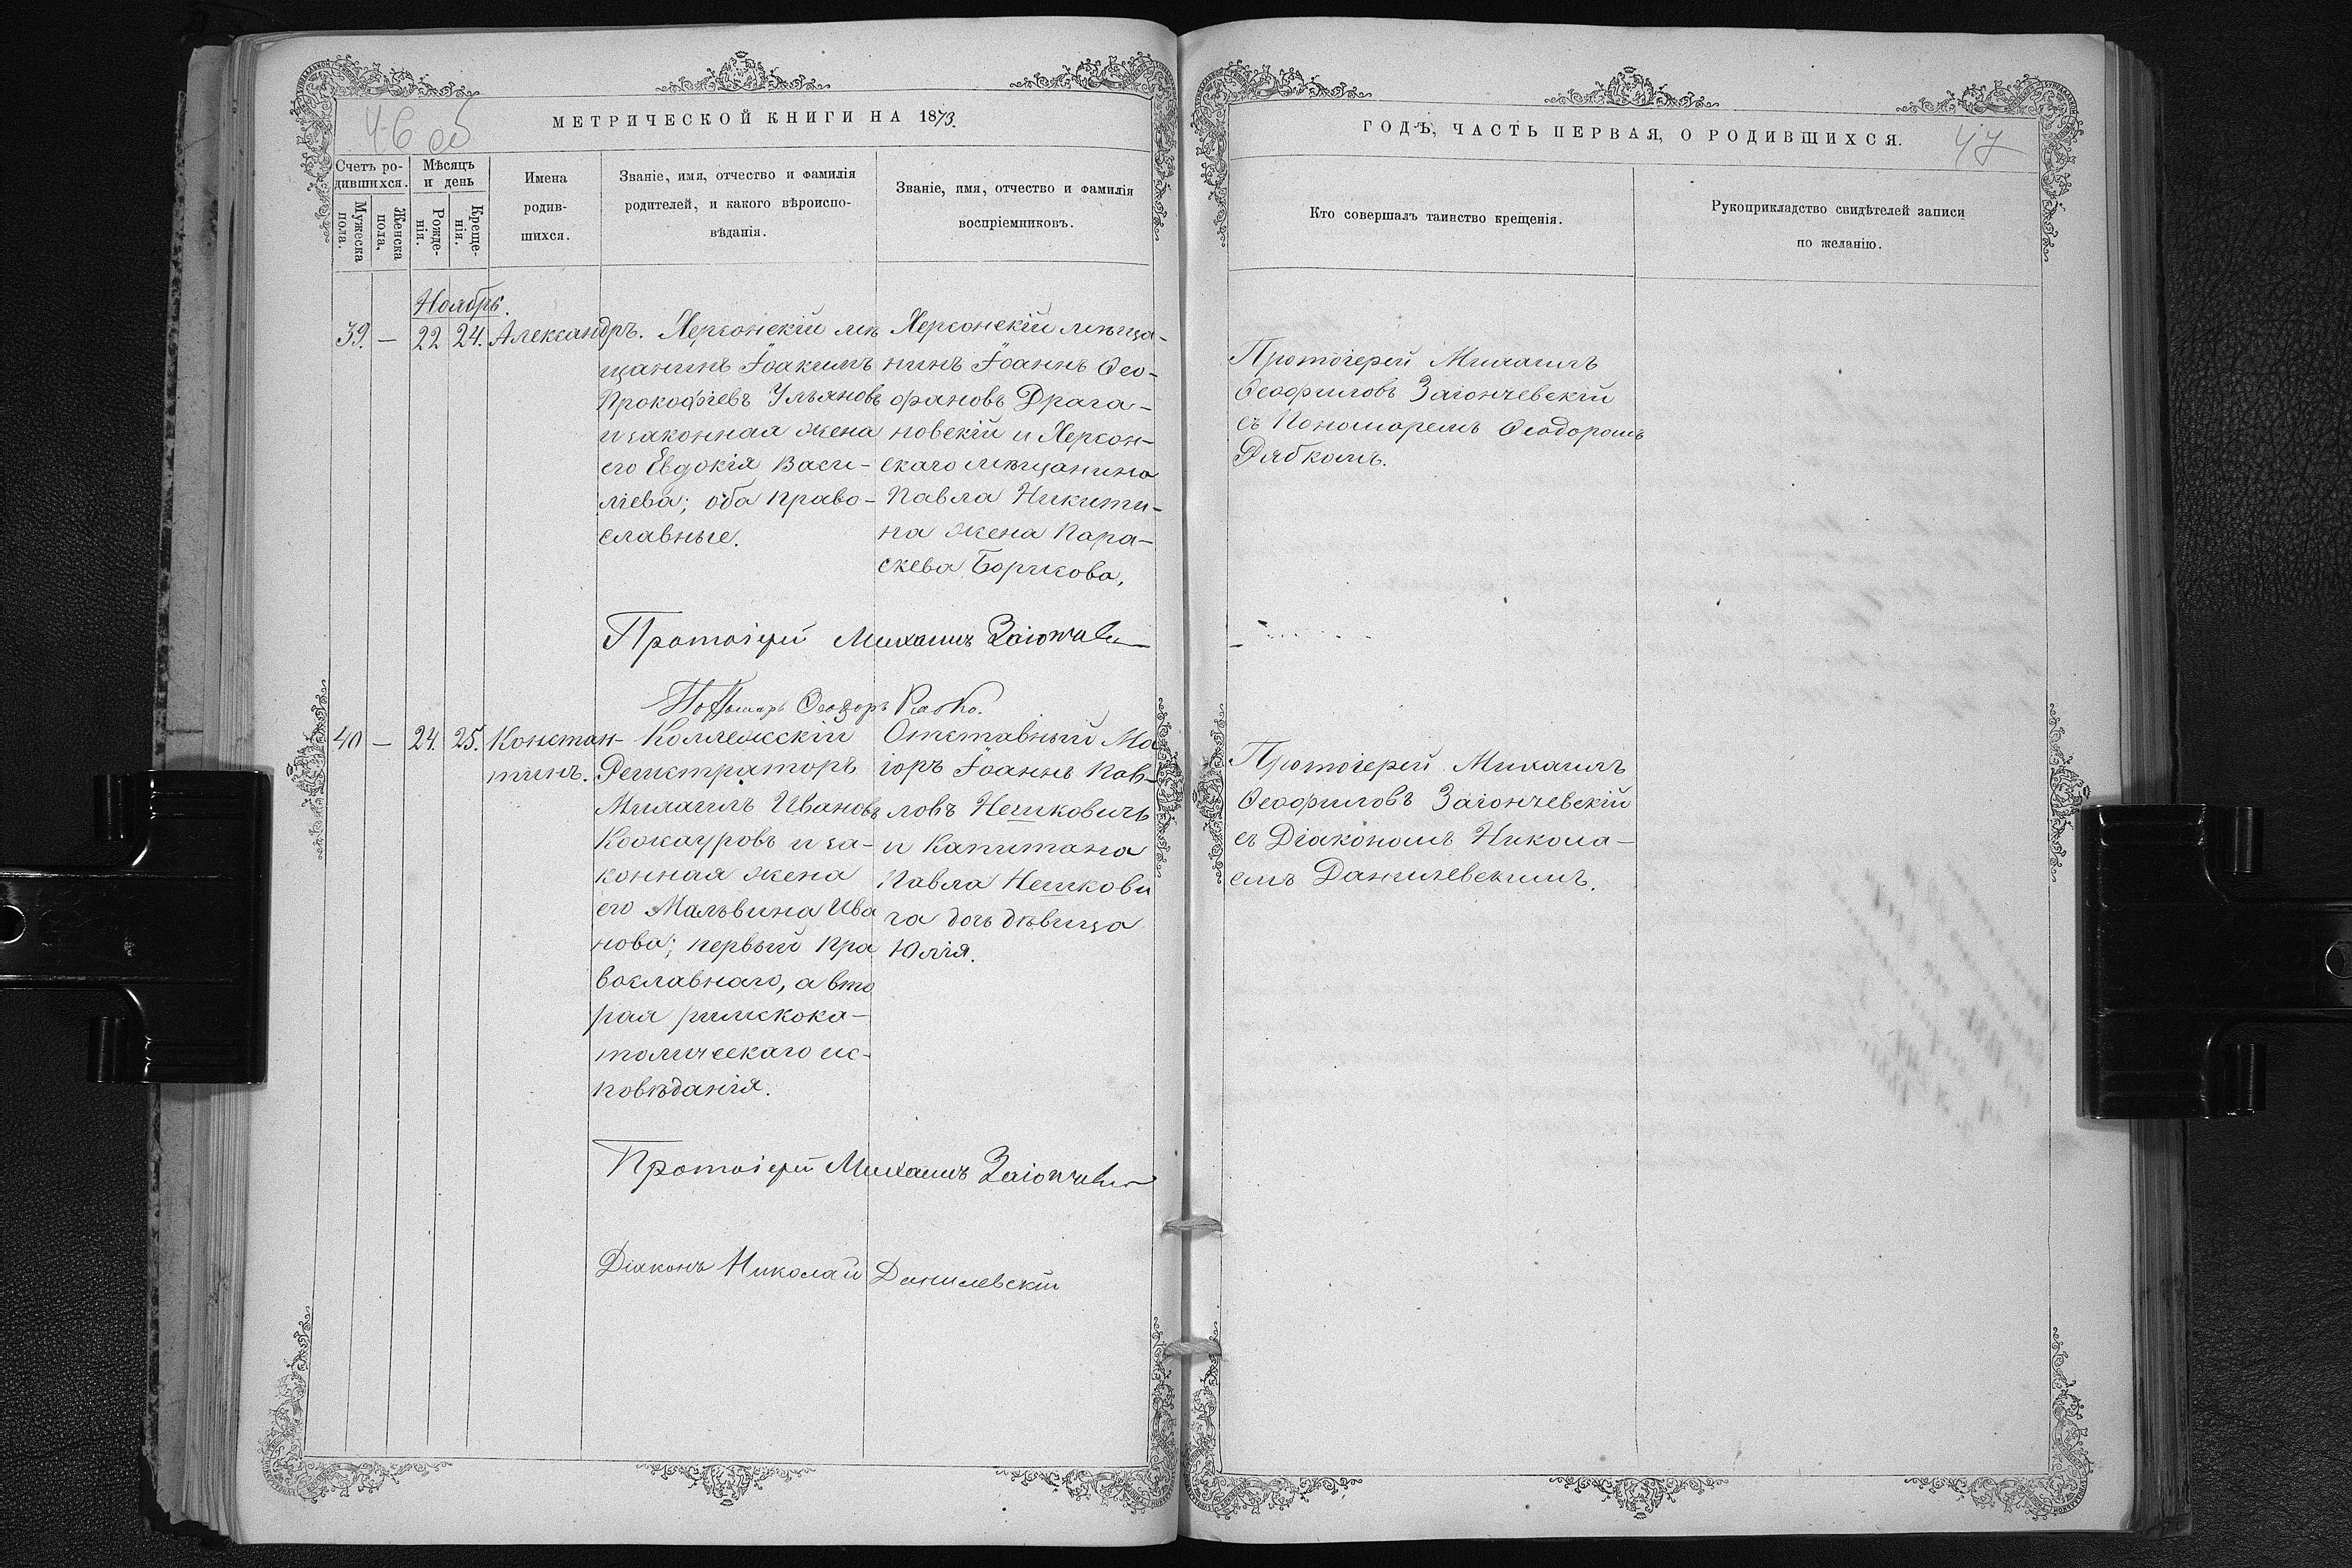 46 об
МЕТРИЧЕСКОЙ КНИГИ НА 1873.
Счетъ ро-
дившихся.
Мужеска
пола.
Женска
пола.
Мѣсяцъ
и день
Рожде-
нія.
Креще-
нія.
Имена
родив-
шихся.
Званіе, имя, отчество и фамилія
родителей, и какого вѣроиспо-
вѣданія.
Званіе, имя, отчество и фамилія
воспріемниковъ.
Ноябрь.
39. — 22 24. Александръ.
Херсонскій мѣ
щанинъ Іоакимъ
Прокофіевъ Ульяновъ
и законная жена
его Евдокія Васи-
ліева; оба право-
славные.
Херсонскій мѣща-
нинъ Іоаннъ Ѳео-
фановъ Драга-
новскій и Херсон-
скаго мѣщанина
Павла Никити-
на жена Пара-
скева Борисова.
Протоіерей Михаилъ Заіончевск
Пономарь Ѳеодоръ Рябко.
40 — 24. 25. Констан-
тинъ.
Коллежскій
Регистраторъ
Михаилъ Ивановъ
Кожауровъ и за-
конная жена
его Мальвина Ива
нова; первый пра
вославнаго, а вто
рая римскока-
толическаго ис-
повѣданія.
Отставный Ма
іоръ Іоаннъ Пав-
ловъ Нешковичъ
и Капитана
Павла Нешкови
ча дочь дѣвица
Юлія.
Протоіерей Михаилъ Заіончевск
Діаконъ Николай Данилевскій
ГОДЪ, ЧАСТЬ ПЕРВАЯ, О РОДИВШИХСЯ.
47
Кто совершалъ таинство крещенія.
Рукоприкладство свидѣтелей записи
по желанію.
Протоіерей Михаилъ
Ѳеофиловъ Заіончевскій
съ Пономаремъ Ѳеодоромъ
Рябкомъ.
Протоіерей Михаилъ
Ѳеофиловъ Заіончевскій
съ Діакономъ Никола-
емъ Данилевскимъ.